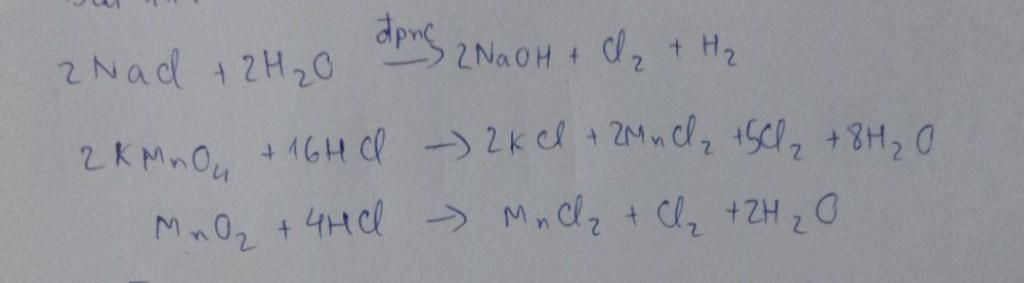 2NaCl + 2H₂O đpnc→ 2NaOH + Cl₂ + H₂
2KMnO₄ + 16HCl → 2KCl + 2MnCl₂ + 5Cl₂ + 8H₂O
MnO₂ + 4HCl → MnCl₂ + Cl₂ + 2H₂O